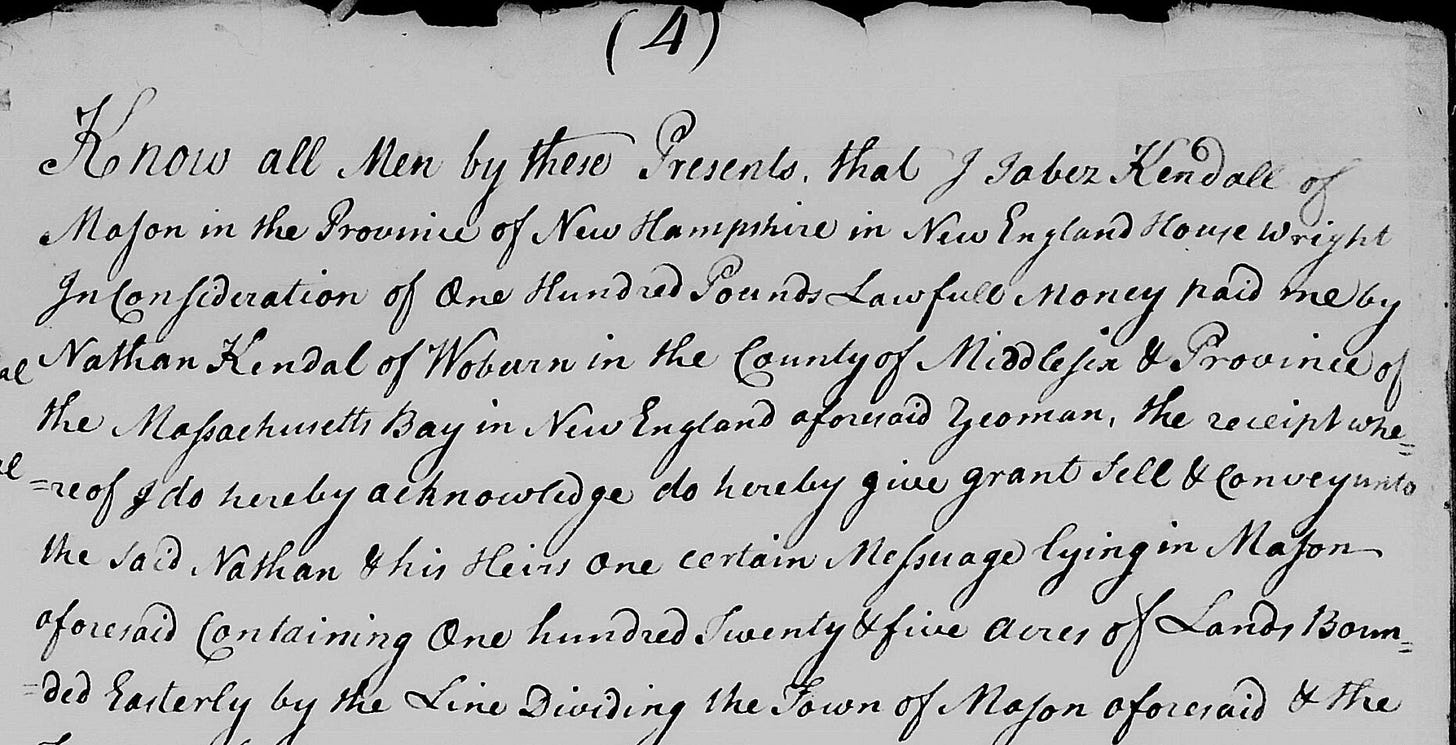 (4)
Know all Men by these Presents, that I Jabez Kendall of
Mason in the Province of New Hampshire in New England House wright
In Consideration of One Hundred Pounds Lawfull Money paid me by
Nathan Kendal of Woburn in the County of Middlesex & Province of
the Massachusetts Bay in New England aforesaid Yeoman, the receipt whe=
=reof I do hereby acknowledge do hereby give grant Sell & Convey unto
the said Nathan & his Heirs One certain Messuage lying in Mason
aforesaid Containing One hundred Twenty & five acres of Lands Boun=
=ded Easterly by the Line Dividing the Town of Mason aforesaid & the